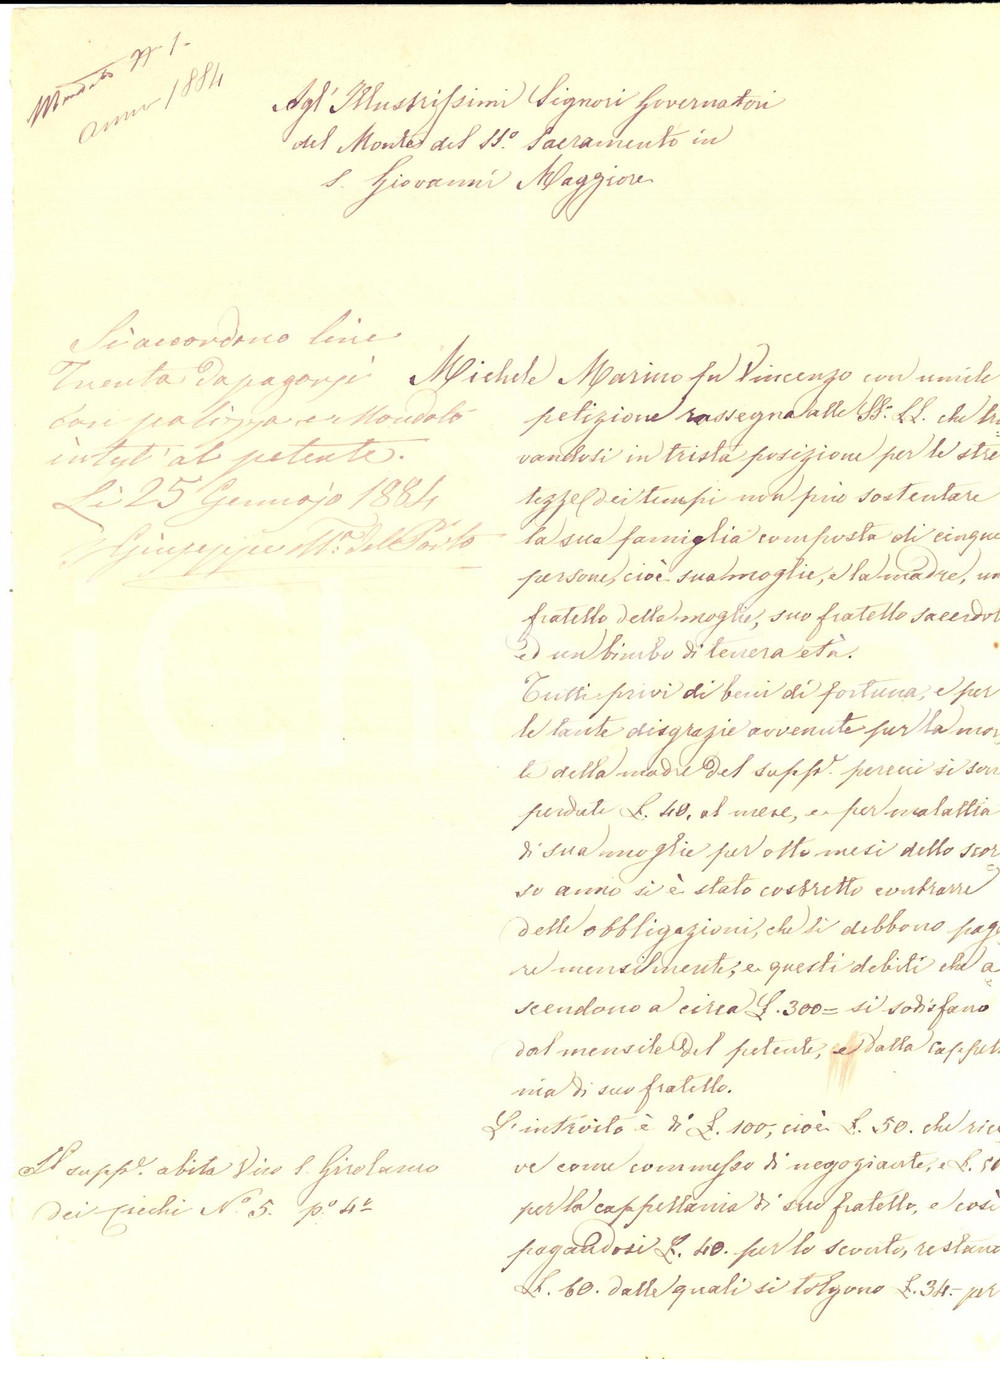 Mandato N 1.
anno 1884
Agl' Illustrissimi Signori Governatori
del Monte del SS.º Sacramento in
S. Giovanni Maggiore
Si accordono lire
Trenta da pagarsi
con polizza e Mandato
intest' al petente.
Li 25 Gennajo 1884
Giuseppe Mª
Michele Marino fu Vincenzo con umile
petizione rassegna alle SS. LL. che tro
vandosi in trista posizione per le stre
tezze dei tempi non può sostentare
la sua famiglia composta di cinque
persone, cioè sua moglie, e la madre, un
fratello della moglie, suo fratello sacerdot
ed un bimbo di tenera età.
Tutti privi di beni di fortuna, e per
le tante disgrazie avvenute per la mor
te della madre del supp.e percui si son
perdute L. 40. al mese, e per malattia
di sua moglie per otto mesi dello scor
so anno si è stato costretto contrarre
delle obbligazioni, che si debbono paga
re mensilmente; e questi debiti che a
scendono a circa L. 300= si sodisfano
dal mensile del petente, e dalla cappell
nia di suo fratello.
L'introito è di L. 100, cioè L. 50. che rice
ve come commesso di negoziante, e L. 50
per la cappellania di suo fratello, e così
pagandosi L. 40. per lo sconto, restano
L. 60. dalle quali si tolgono L. 34.- per
Il supp.e abita Vico S. Girolamo
dei Ciechi Nº 5. pº 4º